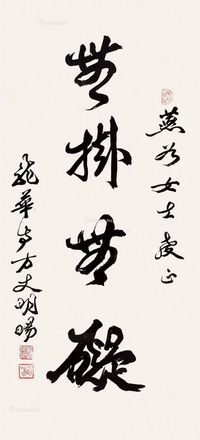 燕谷女士教正
無掛無礙
龍華寺方丈明暘